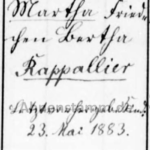 Martha Friede-
chen Bertha
Kappallier
23. Mai 1883.